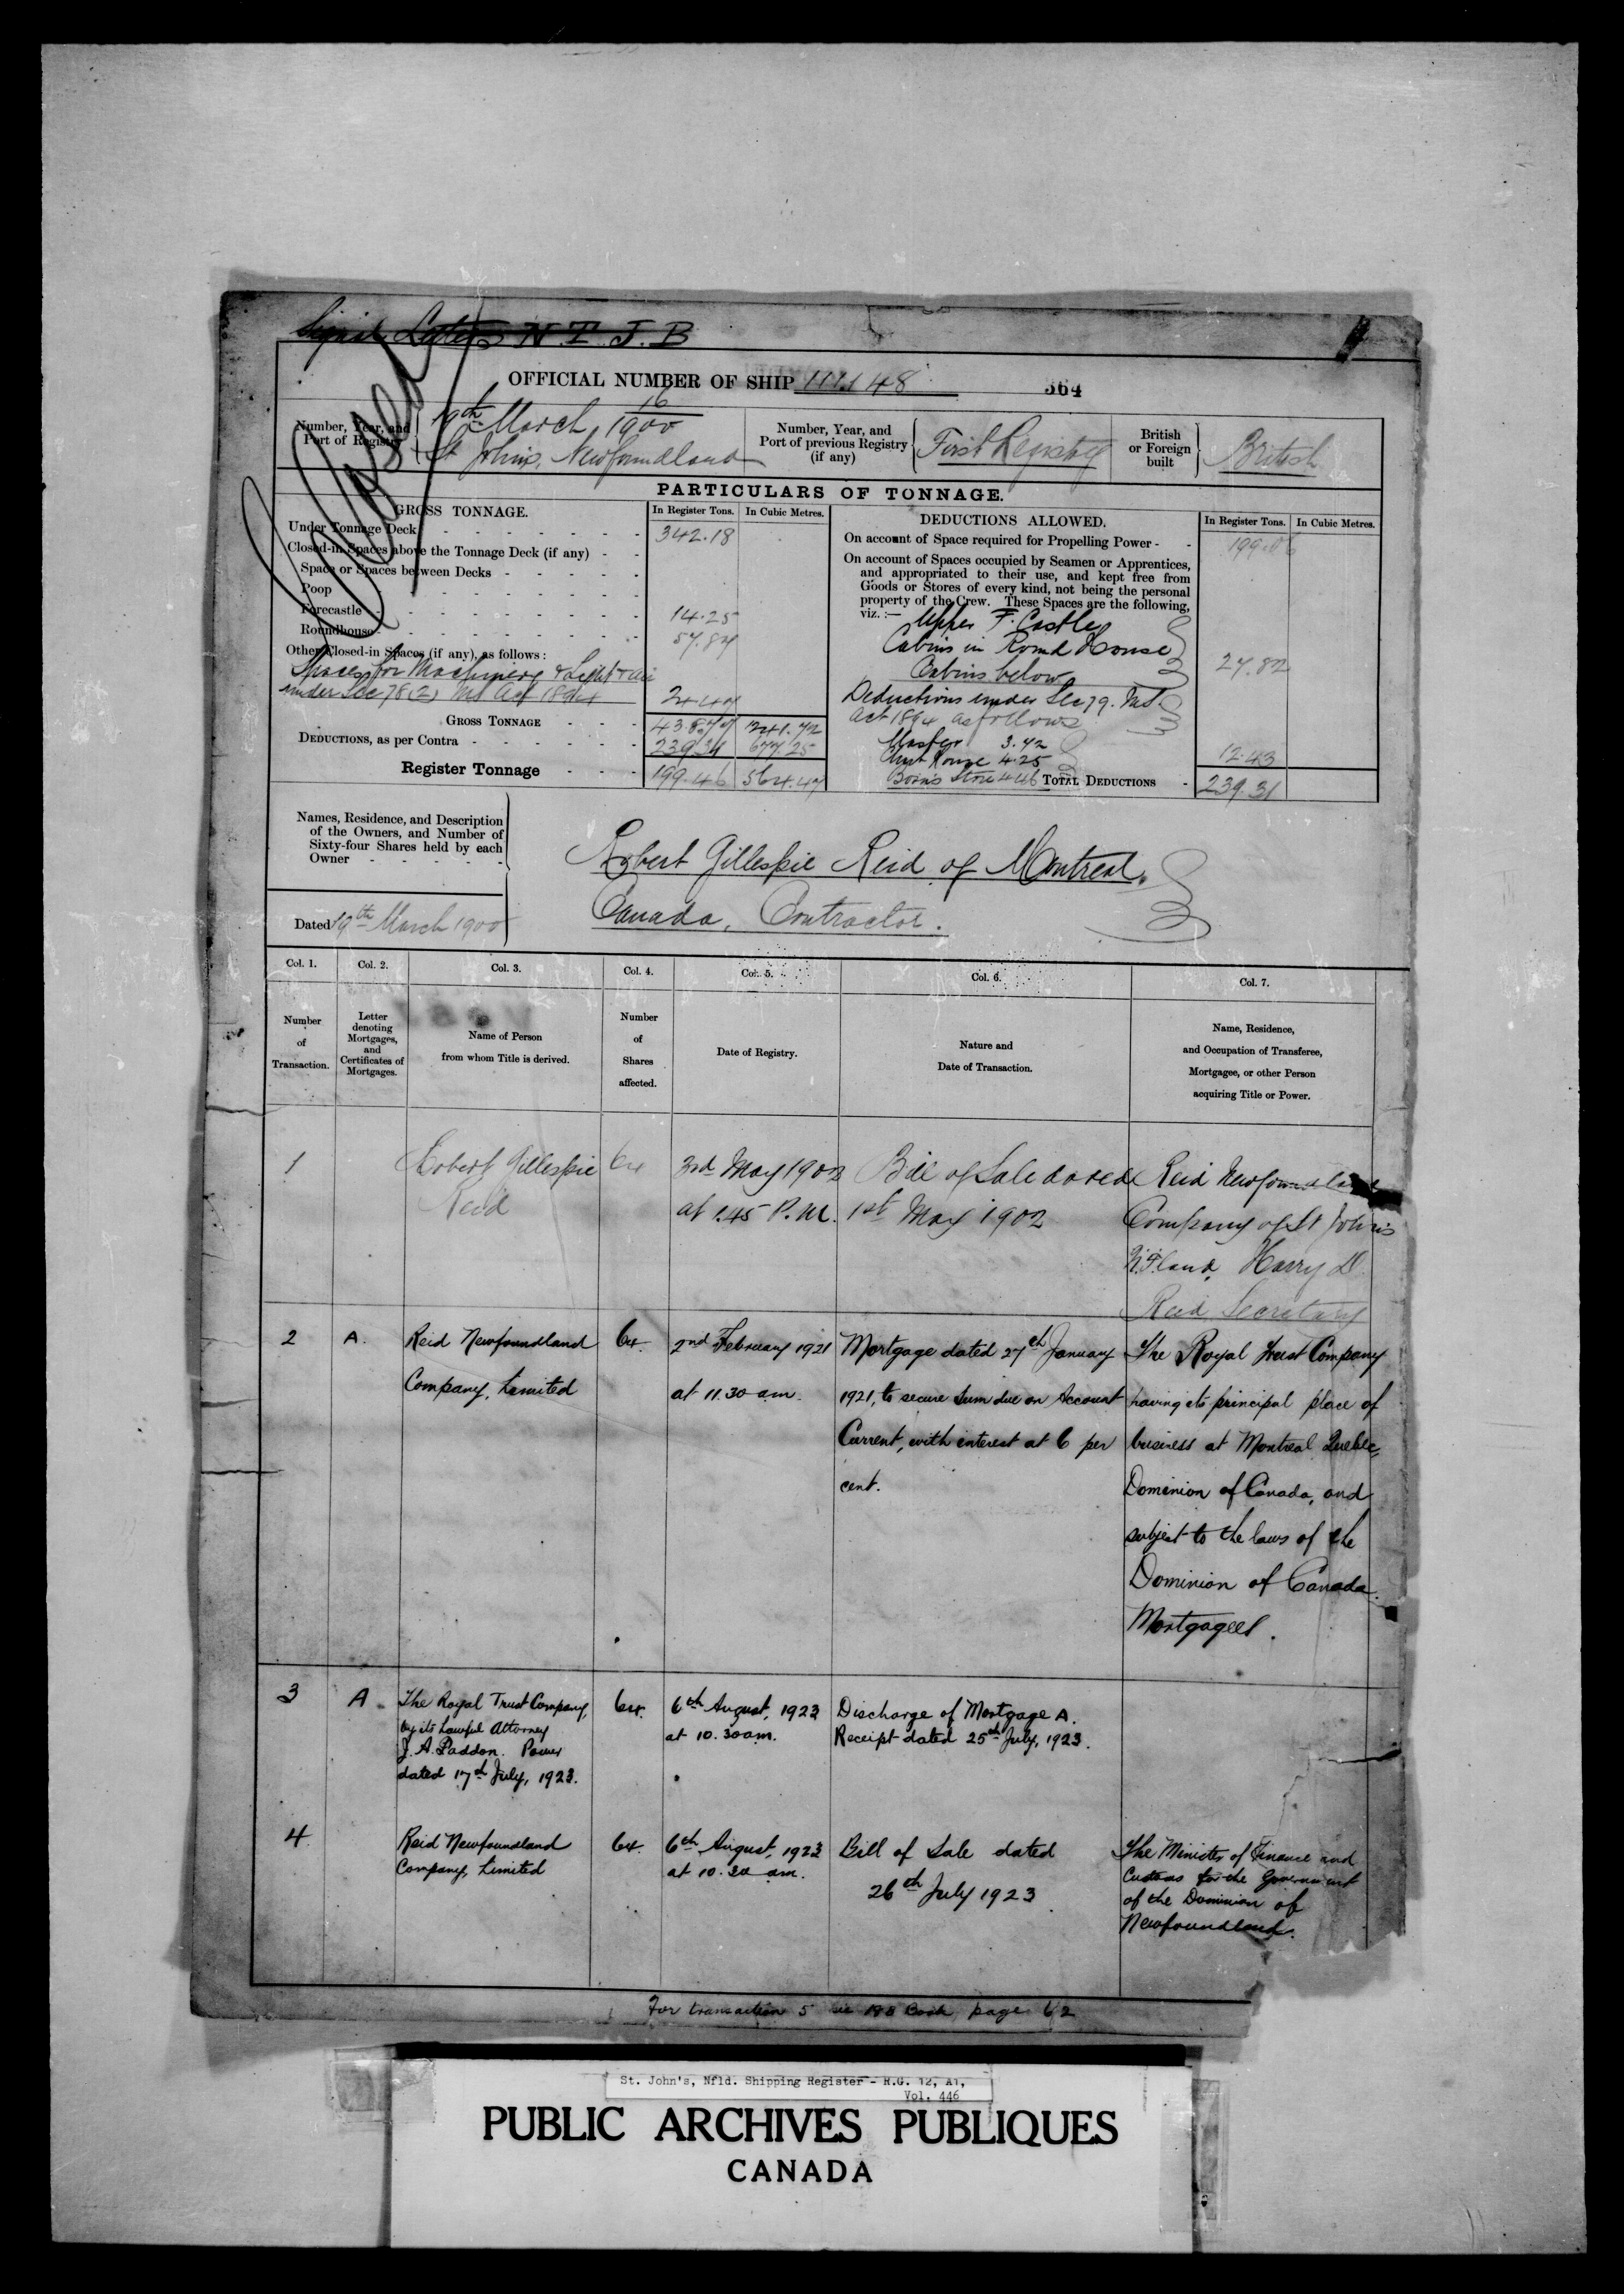 Signal Letters N T J B
Closed
OFFICIAL NUMBER OF SHIP 111148
364
Number, Year, and
Port of Registry
16
19th March 1900
St Johns, Newfoundland
Number, Year, and
Port of previous Registry
(if any)
First Registry
British
or Foreign
built
British
PARTICULARS OF TONNAGE.
GROSS TONNAGE.
In Register Tons.
In Cubic Metres.
Under Tonnage Deck 342.18
Closed-in Spaces above the Tonnage Deck (if any)
Space or Spaces between Decks
Poop
Forecastle 14.25
Roundhouse 57.87
Other Closed-in Spaces (if any), as follows:
Spaces for Machinery & Light & air
under Sec 78(2) Mt Act 1894 24.47
GROSS TONNAGE 438.77 1241.72
DEDUCTIONS, as per Contra 239.31 677.25
Register Tonnage 199.46 564.47
DEDUCTIONS ALLOWED.
In Register Tons.
In Cubic Metres.
On account of Space required for Propelling Power 199.06
On account of Spaces occupied by Seamen or Apprentices,
and appropriated to their use, and kept free from
Goods or Stores of every kind, not being the personal
property of the Crew. These Spaces are the following,
viz.:—
Upper F. Castle
Cabins in Round House
Cabins below 27.82
Deductions under Sec 79. Mt.
Act 1894 as follows
Master 3.72
Chart House 4.25 12.43
Bosns Store 4.46
TOTAL DEDUCTIONS 239.31
Names, Residence, and Description
of the Owners, and Number of
Sixty-four Shares held by each
Owner
Robert Gillespie Reid of Montreal,
Canada, Contractor.
Dated 19th March 1900
Col. 1. Col. 2. Col. 3. Col. 4. Col. 5. Col. 6. Col. 7.
Number
of
Transaction.
Letter
denoting
Mortgages,
and
Certificates of
Mortgages.
Name of Person
from whom Title is derived.
Number
of
Shares
affected.
Date of Registry.
Nature and
Date of Transaction.
Name, Residence,
and Occupation of Transferee,
Mortgagee, or other Person
acquiring Title or Power.
1
Robert Gillespie
Reid
64
3rd May 1902
at 1.45 P.M.
Bill of Sale dated
1st May 1902
Reid Newfoundland
Company of St John's
N.F.land, Harry D.
Reid Secretary
2
A.
Reid Newfoundland
Company, Limited
64.
2nd February 1921
at 11.30 am.
Mortgage dated 27th January
1921, to secure Sum due on Account
Current, with interest at 6 per
cent.
The Royal Trust Company
having its principal place of
business at Montreal Quebec,
Dominion of Canada, and
subject to the laws of the
Dominion of Canada.
Mortgagees.
3
A
The Royal Trust Company,
by its Lawful Attorney
J. A. Paddon. Power
dated 17th July, 1923.
64.
6th August, 1923
at 10.30 am.
Discharge of Mortgage A.
Receipt dated 25th July, 1923.
4
Reid Newfoundland
Company, Limited
64.
6th August, 1923
at 10.30 am.
Bill of Sale dated
26th July 1923
The Minister of Finance and
Customs for the Government
of the Dominion of
Newfoundland.
For transaction 5 see Book page 62
St. John's, Nfld. Shipping Register - R.G. 12, A1,
Vol. 446
PUBLIC ARCHIVES PUBLIQUES
CANADA